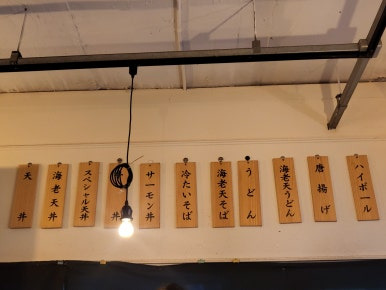 ハイボール
唐揚げ
海老天うどん
うどん
海老天そば
冷たいそば
サーモン丼
丼
スペシャル天丼
海老天丼
天丼